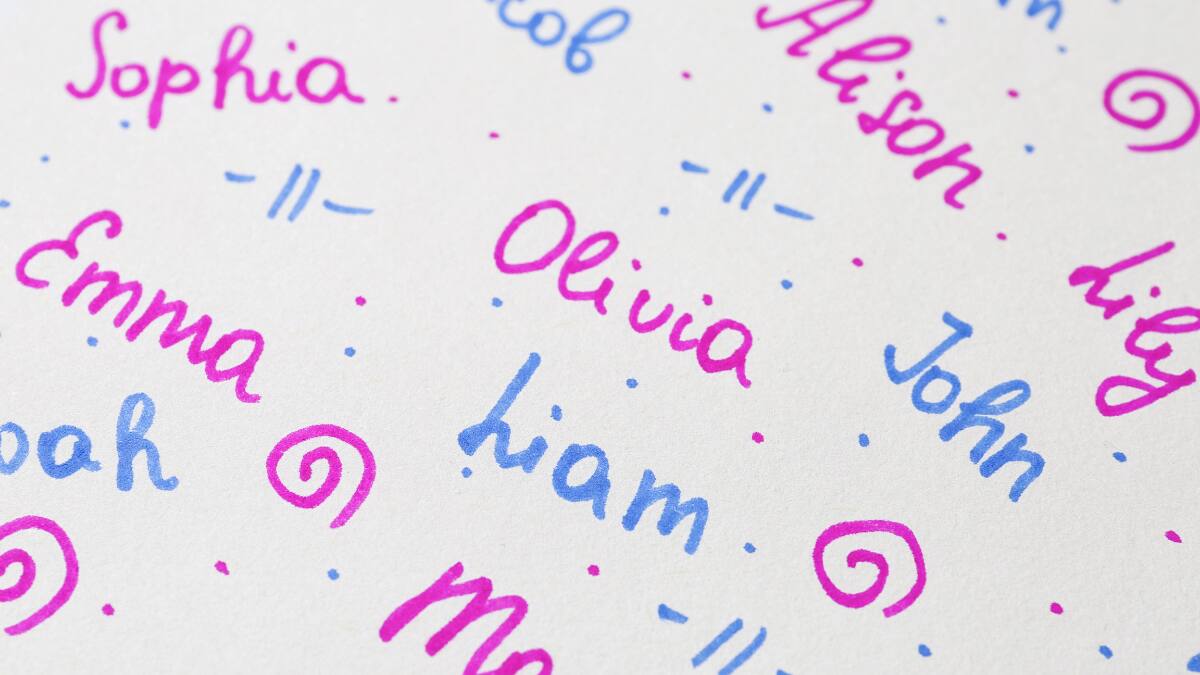 Sophia
cob
Alison
Emma
Olivia
Lily
John
oah
Liam